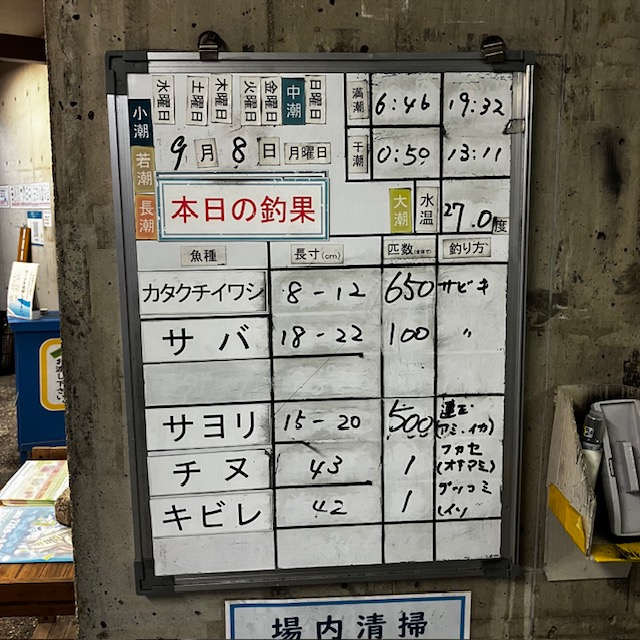 水曜日 土曜日 木曜日 火曜日 金曜日 中潮 日曜日
小潮
若潮
長潮
9月8日 月曜日
満潮 6:46 19:32
干潮 0:50 13:11
本日の釣果
大潮 水温 27.0度
魚種 長寸(cm) 匹数 釣り方
カタクチイワシ 8-12 650 サビキ
サバ 18-22 100 〃
サヨリ 15-20 500 連玉
(アミ.イカ)
チヌ 43 1 フカセ
(オキアミ)
キビレ 42 1 ブッコミ
場内清掃